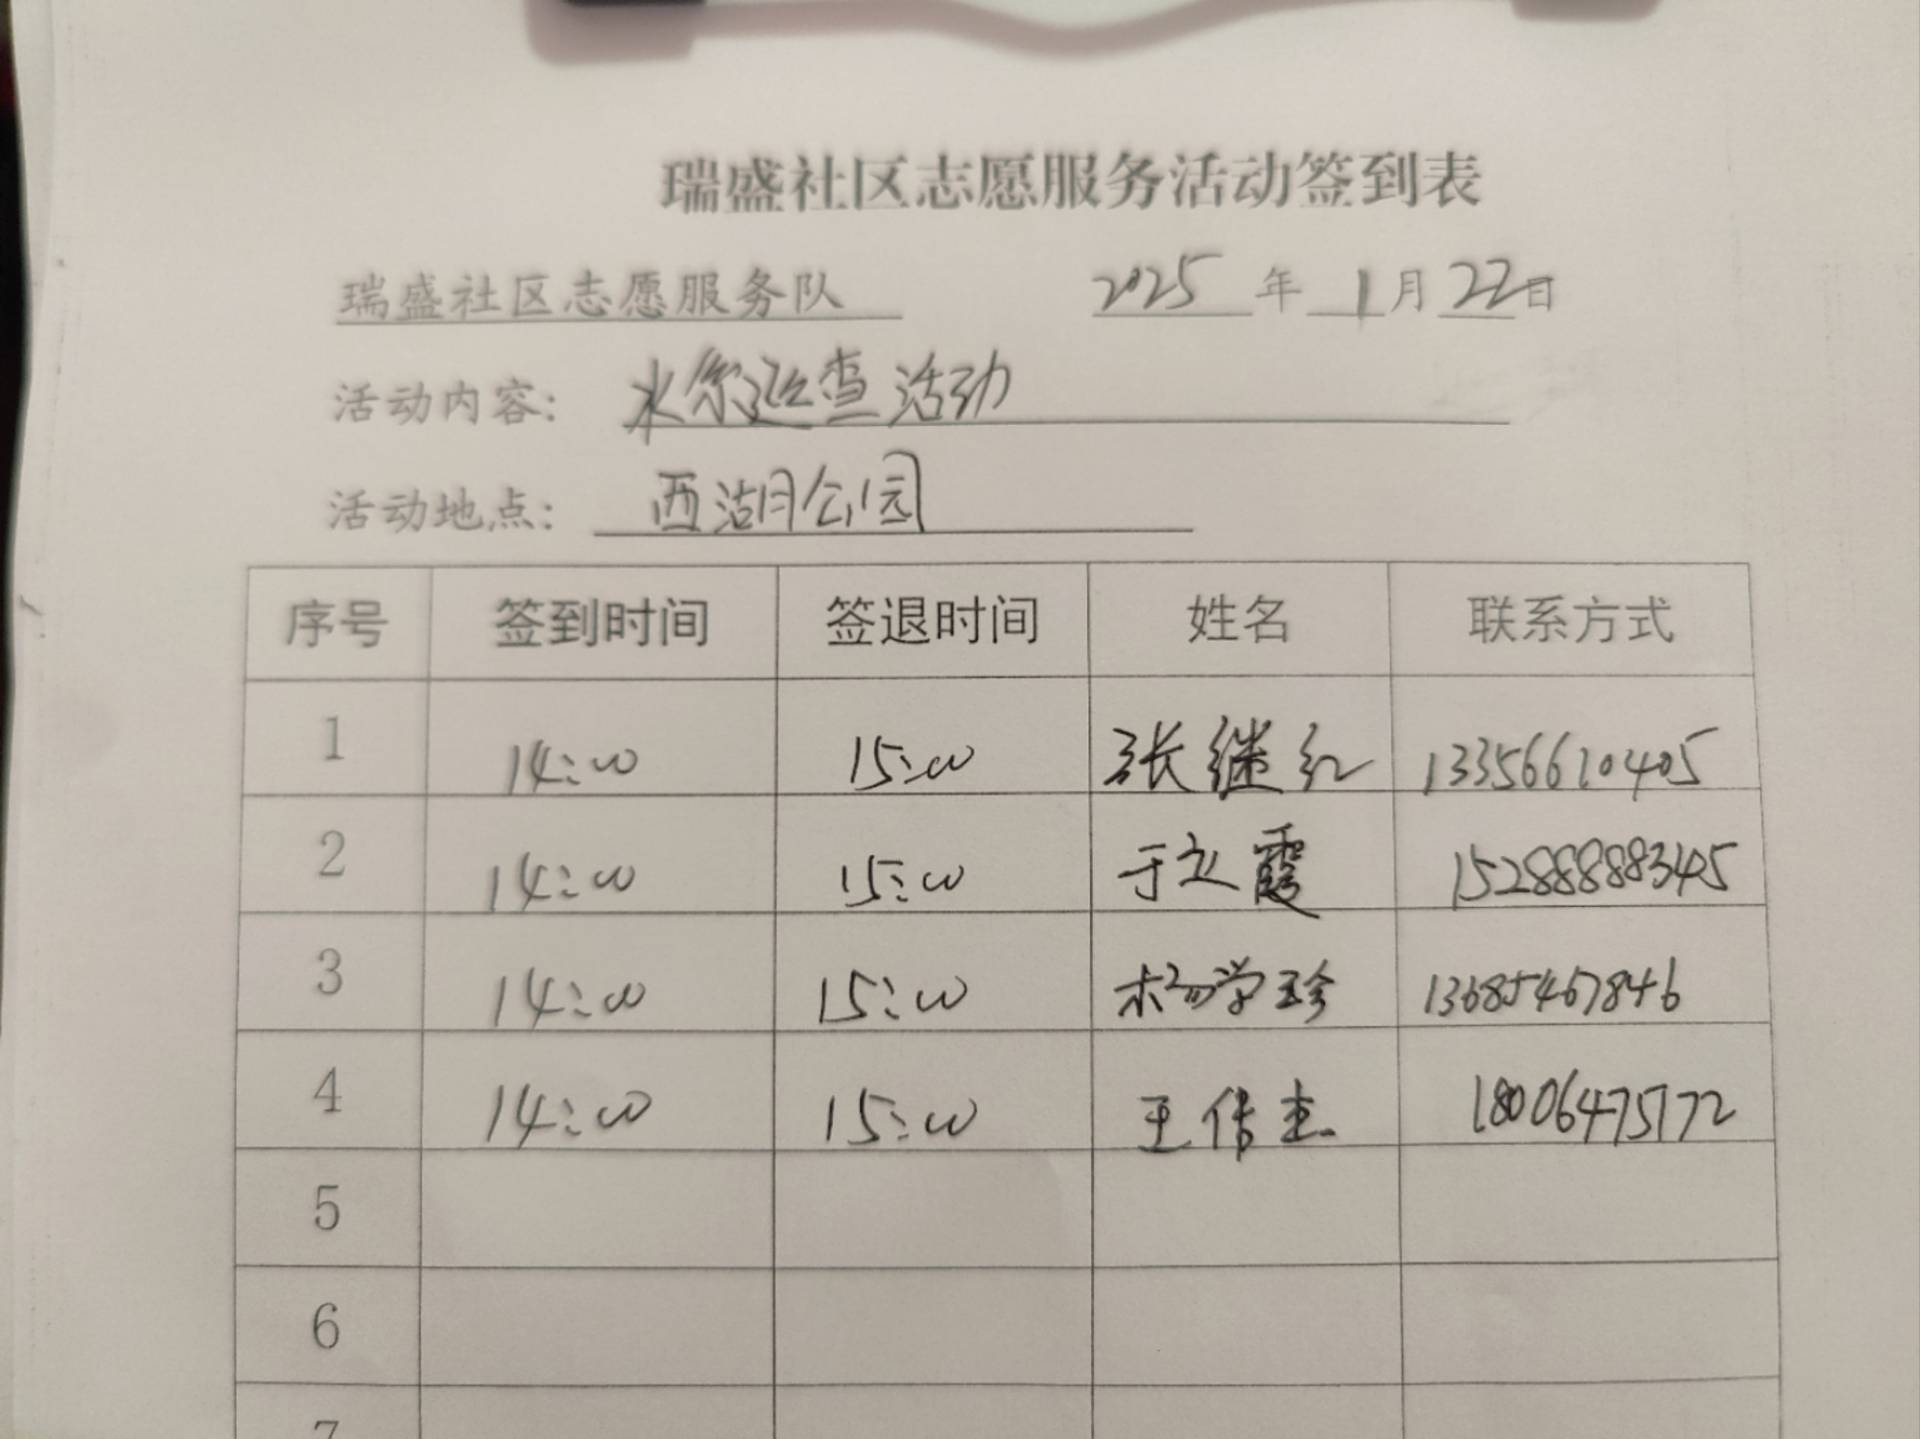 瑞盛社区志愿服务活动签到表
瑞盛社区志愿服务队 2025 年 1 月 22 日
活动内容: 水系巡查活动
活动地点: 西湖公园
序号 签到时间 签退时间 姓名 联系方式
1 14:00 15:00 张继红 13356610405
2 14:00 15:00 于立霞 15288888345
3 14:00 15:00 杨学珍 13685467846
4 14:00 15:00 王传杰 18006475172
5
6
7